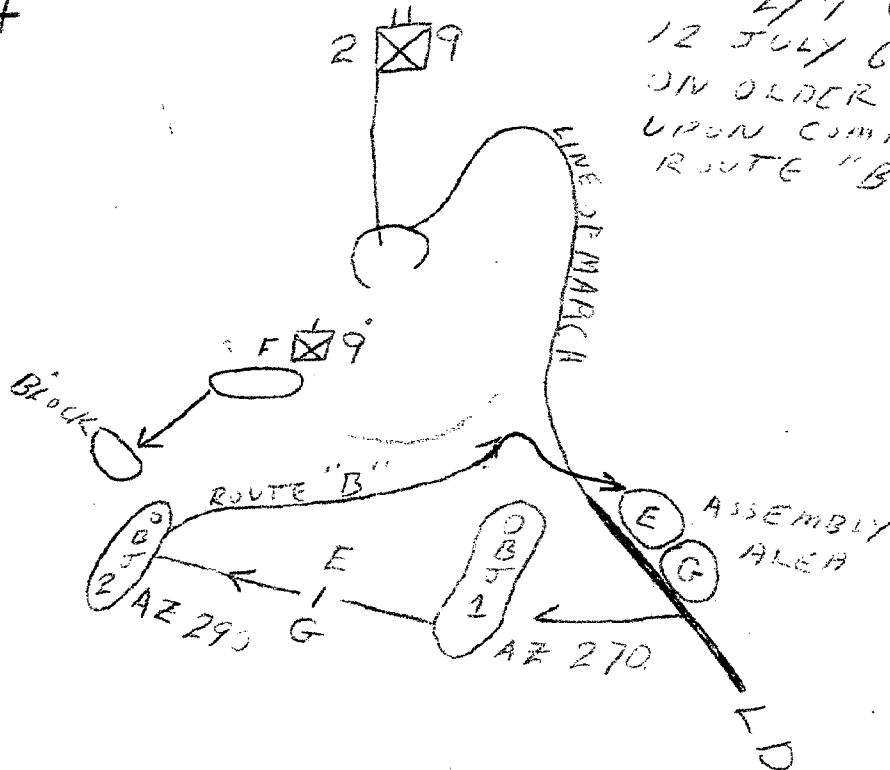 2 9
12 JULY 6
ON OLDER
UPON
ROUTE "B
LINE OF MARCH
F 9
BLOCK
ROUTE "B"
E
G
ASSEMBLY
ALEA
OBJ
2
AZ 290
E
G
OBJ
1
AZ 270
LD